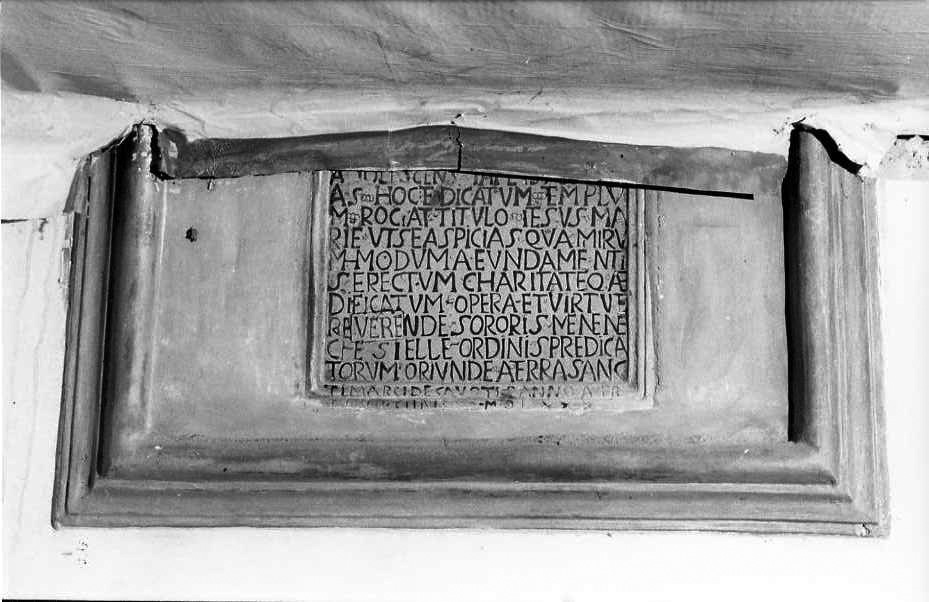 A·S·HOC·EDICATVM·TEMPLV
M·ROGAT·TITVLO·IESVS·MA
RIE·VTSEASPICIAS·QVAMIRV
M·MODVMAEVNDAMENTI
S·ERECTVM CHARITATEQÆ
DIFICATVM·OPERA·ETVIRTVT
REVERENDE·SORORIS·MENENE
CHE·SIELLE·ORDINIS PREDICA
TORVM·ORIVNDE·AERRASANC
TI MARCI DE CAVOTIS ANNO A